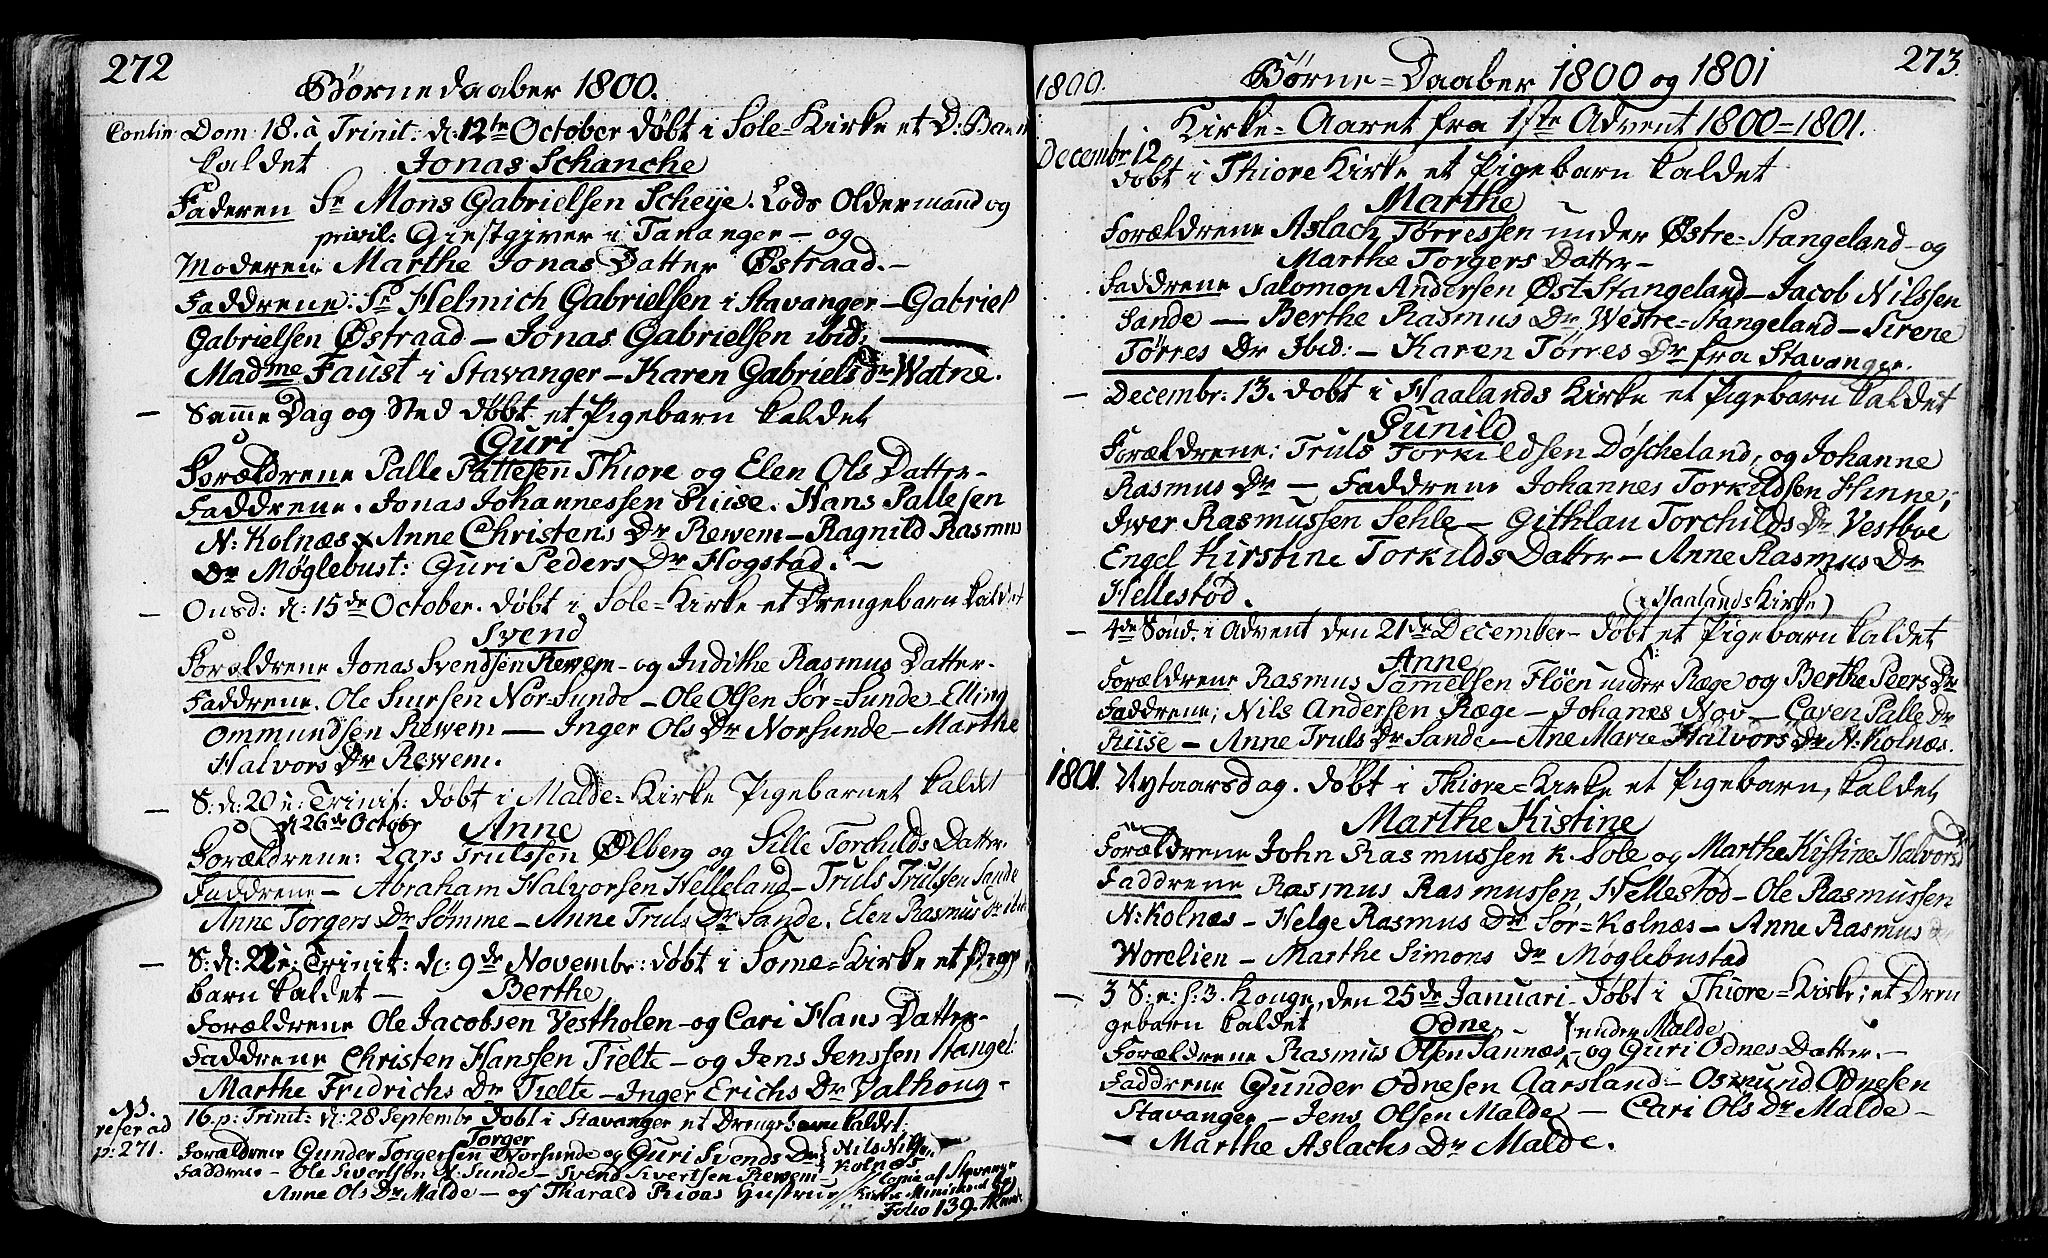 272
Børnedaaber 1800.
Contin Dom 18. à Trinit: d: 12te October døbt i Sole=Kirke et D: Barn
kaldet Jonas Schanche
Faderen Sr Mons Gabrielsen Scheje. Lods Oldermand og
privil: Giestgiver i Tananger – og
Moderen Marthe Jonas Datter Østraad. –
Faddrene: Sr Helmich Gabrielsen i Stavanger – Gabriel
Gabrielsen Østraad – Jonas Gabrielsen ibid:
Madme Faust i Stavanger – Karen Gabriels dr Watne.
– Samme Dag og Sted døbt et Pigebarn kaldet
Guri
Forældrene Palle Pallesen Thiore og Elen Ols Datter –
Faddrene. Jonas Johannessen Riise. Hans Pallesen
N: Kolnæs Anne Christens Dr Rewem – Ragnild Rasmus
Dr Møglebust: Guri Peders Dr Hogstad. –
– Onsd: d: 15de October. døbt i Sole=Kirke et Drengebarn kaldet
Svend
Forældrene Jonas Svendsen Rewem – og Judithe Rasmus Datter.
Faddrene. Ole Siursen Nor=Sunde – Ole Olsen Sør=Sunde – Elling
Ommundsen Rewem – Inger Ols Dr Norsunde – Marthe
Halvors Dr Rewem.
– S: d: 20 e: Trinit: døbt i Malde=Kirke Pigebarnet kaldt
d 26de Octobr Anne
Forældrene: Lars Trulssen Ølberg og Sille Torchilds Datter.
Faddrene – Abraham Halvorsen Helleland – Truls Trulssen Sande
Anne Torgers Dr Sømme – Anne Truls Dr Sande. Elen Rasmus Dr ibid
– S: d: 22 e: Trinit: d: 9de Novembr: døbt i Some=Kirke et Pige
barn kaldet – Berthe
Forældrene Ole Jacobsen Vestholen – og Cari Hans Datter –
Faddrene Christen Hanssen Tielte – og Jens Jenssen Stangel:
Marthe Fridrichs Dr Tielte – Inger Erichs Dr Valhoug –
NB. refer ad p: 271.
16. p: Trinit: d: 28 Septembr døbt i Stavanger et Drengebarn kaldet:
Torger
Forældrene Gunder Torgersen Norsunde og Guri Svends Dr { Nils Nilsen Kolnæs
Faddrene – Ole Sivertsen N. Sunde – Svend Sivertsen Rewem –
Anne Ols Dr Malde – og Tharald Hustrue // Copie af Stavanger
Kirke Ministerial Bog
Folio 139.
273.
1800. Børne=Daaber 1800 og 1801
Kirke=Aaret fra 1ste Advent 1800=1801.
Decembr: 12
døbt i Thiore Kirke et Pigebarn kaldet
Marthe
Forældrene Aslach Tørressen under Østre=Stangeland – og
Marthe Torgers Datter –
Faddrene Salomon Andersen Øst Stangeland – Jacob Nilssen
Sande – Berthe Rasmus Dr Westre=Stangeland – Sirene
Tørres Dr Ibid: – Karen Tørres Dr fra Stavanger.
– Decembr: 13. døbt i Haalands Kirke et Pigebarn kaldet
Gunild
Forældrene: Truls Torkildsen Døscheland, og Johanne
Rasmus Dr – Faddrene Johannes Torkildsen Hinne;
Iwer Rasmussen Sehle – Githlau Torchilds Dr Vestboe
Engel Kirstine Torkilds Datter – Anne Rasmus Dr
Hellestød. (i Haalands Kirke)
– 4de Sønd. i Advent den 21de December – døbt et Pigebarn kaldet
Anne
Forældrene Rasmus Samelsen Fløen under Ræge og Berthe Peers Dr
Faddrene; Nils Andersen Ræge – Johanes Nov – Caren Palle Dr
Riise – Anne Truls Dr Sande – Ane Marie Halvors Dr N: Kolnæs.
1801. Nytaarsdag. døbt i Thiore=Kirke et Pigebarn, kaldet
Marthe Kistine
Forældrene John Rasmussen K. Sole og Marthe Kistine Halvorsd
Faddrene Rasmus Rasmussen, Hellestød – Ole Rasmussen
N: Kolnæs – Helge Rasmus Dr Sør=Kolnæs – Anne Rasmus Dr
Worelien – Marthe Simons Dr Møglebustad
– 3 S: e: h: 3. Konge, den 25de Januari døbt i Thiore=Kirke; et Dren
gebarn kaldet Odne – { under Malde
Forældrene Rasmus Olsen Sannæs – og Guri Odnes Datter. –
Faddrene Gunder Odnesen Aarsland – Osmund Odnesen
Stavanger – Jens Olsen Malde – Cari Ols Dr Malde –
– Marthe Aslachs Dr Malde.